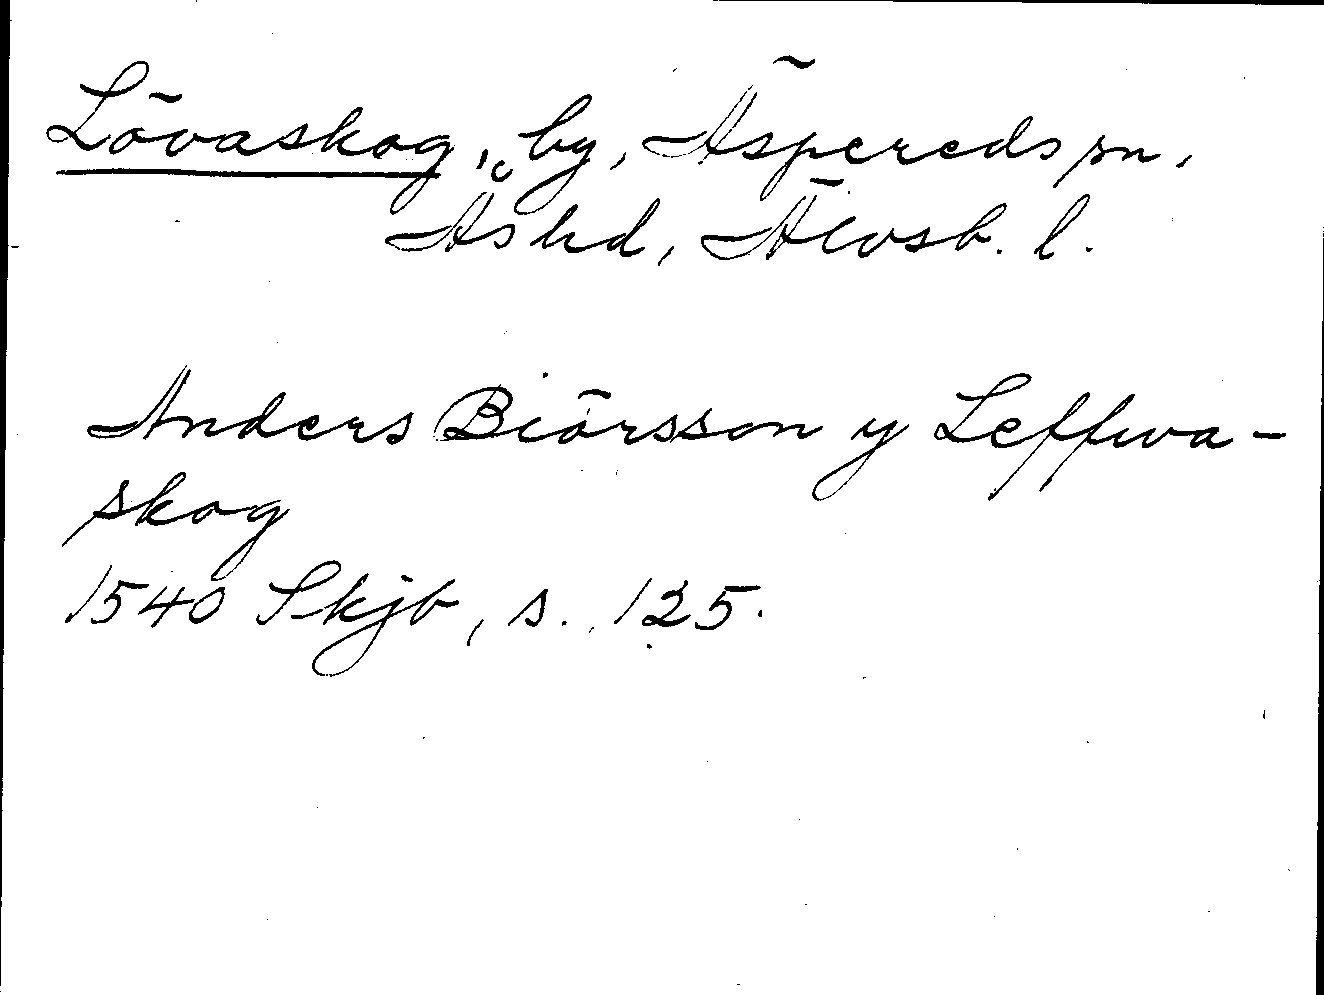 Lövaskog, by, Äspereds sn,
Ås hd, Älvsb. l.
Anders Biörsson y Leffwa-
skog
1540 Skjb, s. 125.